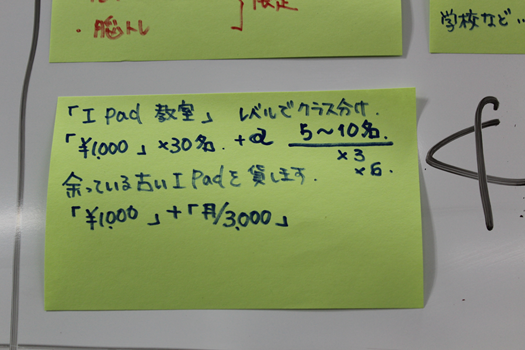 ・脳トレ
限定
学校など…
「I Pad 教室」 レベルでクラス分け.
「¥1,000」×30名. +α 5〜10名.
×3
×6.
余っている古いI Padを貸します.
「¥1,000」+「月/3,000」